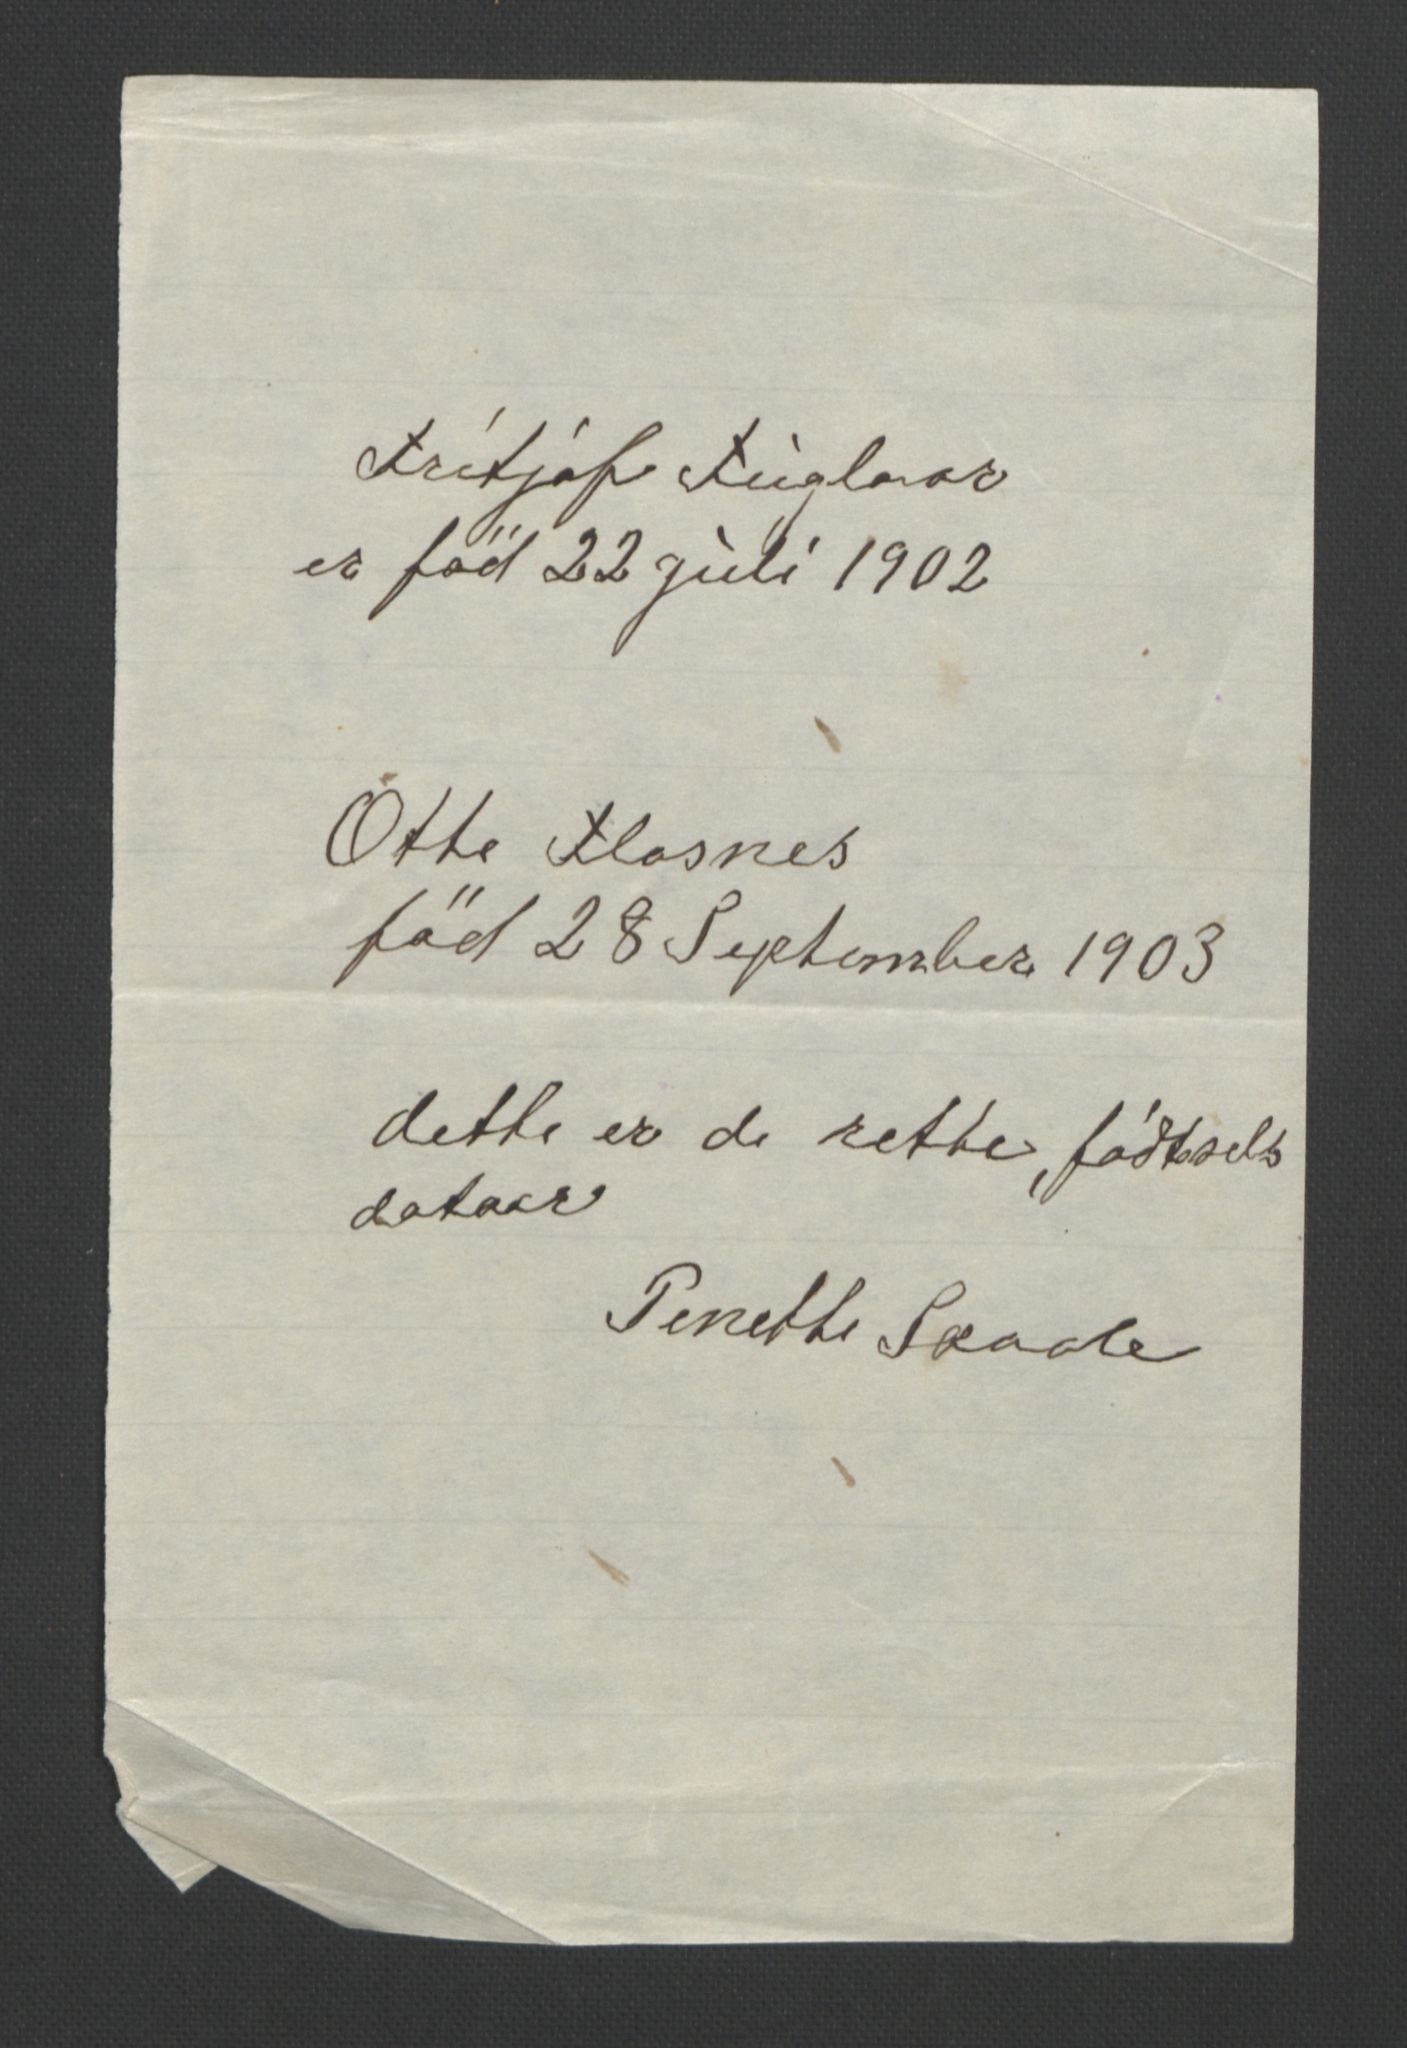 Fritjåf Fuglaar
er född 22 juli 1902
Otte Flasnes
född 28 September 1903
dette er de rette födtsels
dataar
Penette Saade